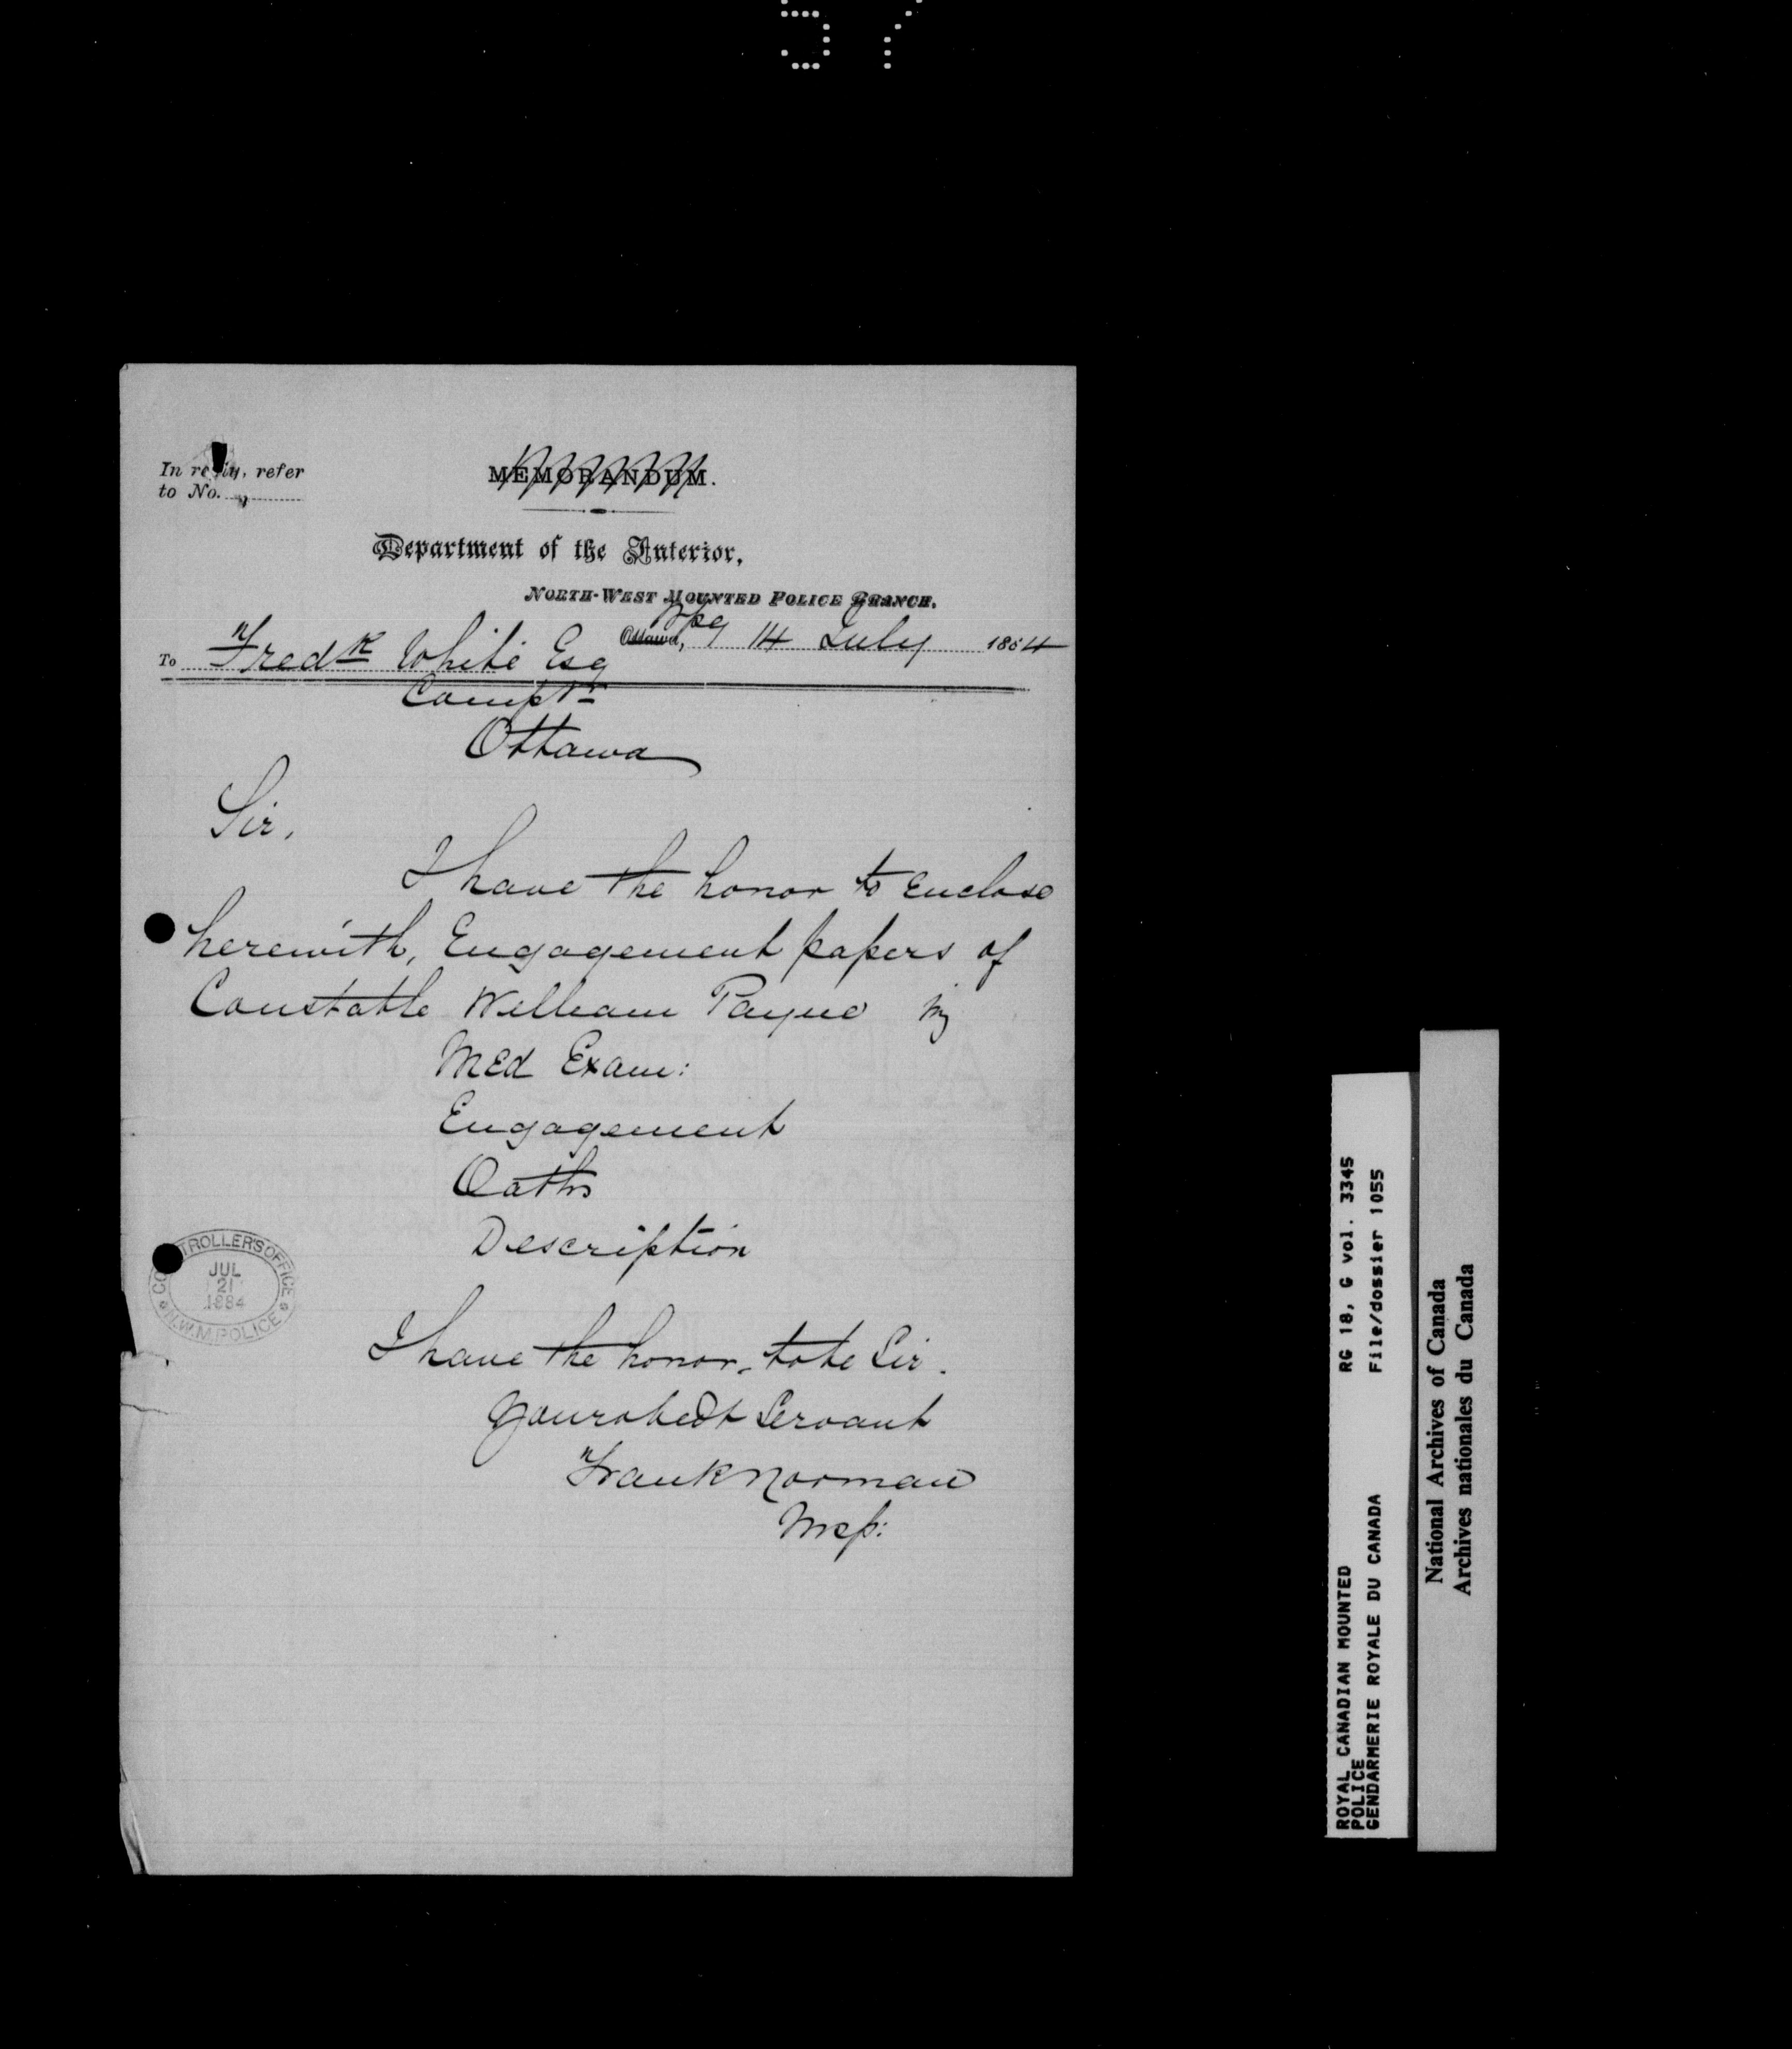 57
In reply, refer
to No.
MEMORANDUM.
Department of the Interior,
NORTH-WEST MOUNTED POLICE BRANCH.
Ottawa, Wpg 14 July 1884
To Fredk White Esq
Comptr
Ottawa
Sir,
I have the honor to Enclose
herewith, Engagement papers of
Constable William Payne
Med Exam:
Engagement
Oaths
Description
I have the honor, to be Sir.
Your obedt Servant
Frank Norman
Insp:
CONTROLLER'S OFFICE
JUL
21
1884
N.W.M. POLICE
ROYAL CANADIAN MOUNTED
POLICE
GENDARMERIE ROYALE DU CANADA
RG 18, G vol. 3345
File/dossier 1055
National Archives of Canada
Archives nationales du Canada